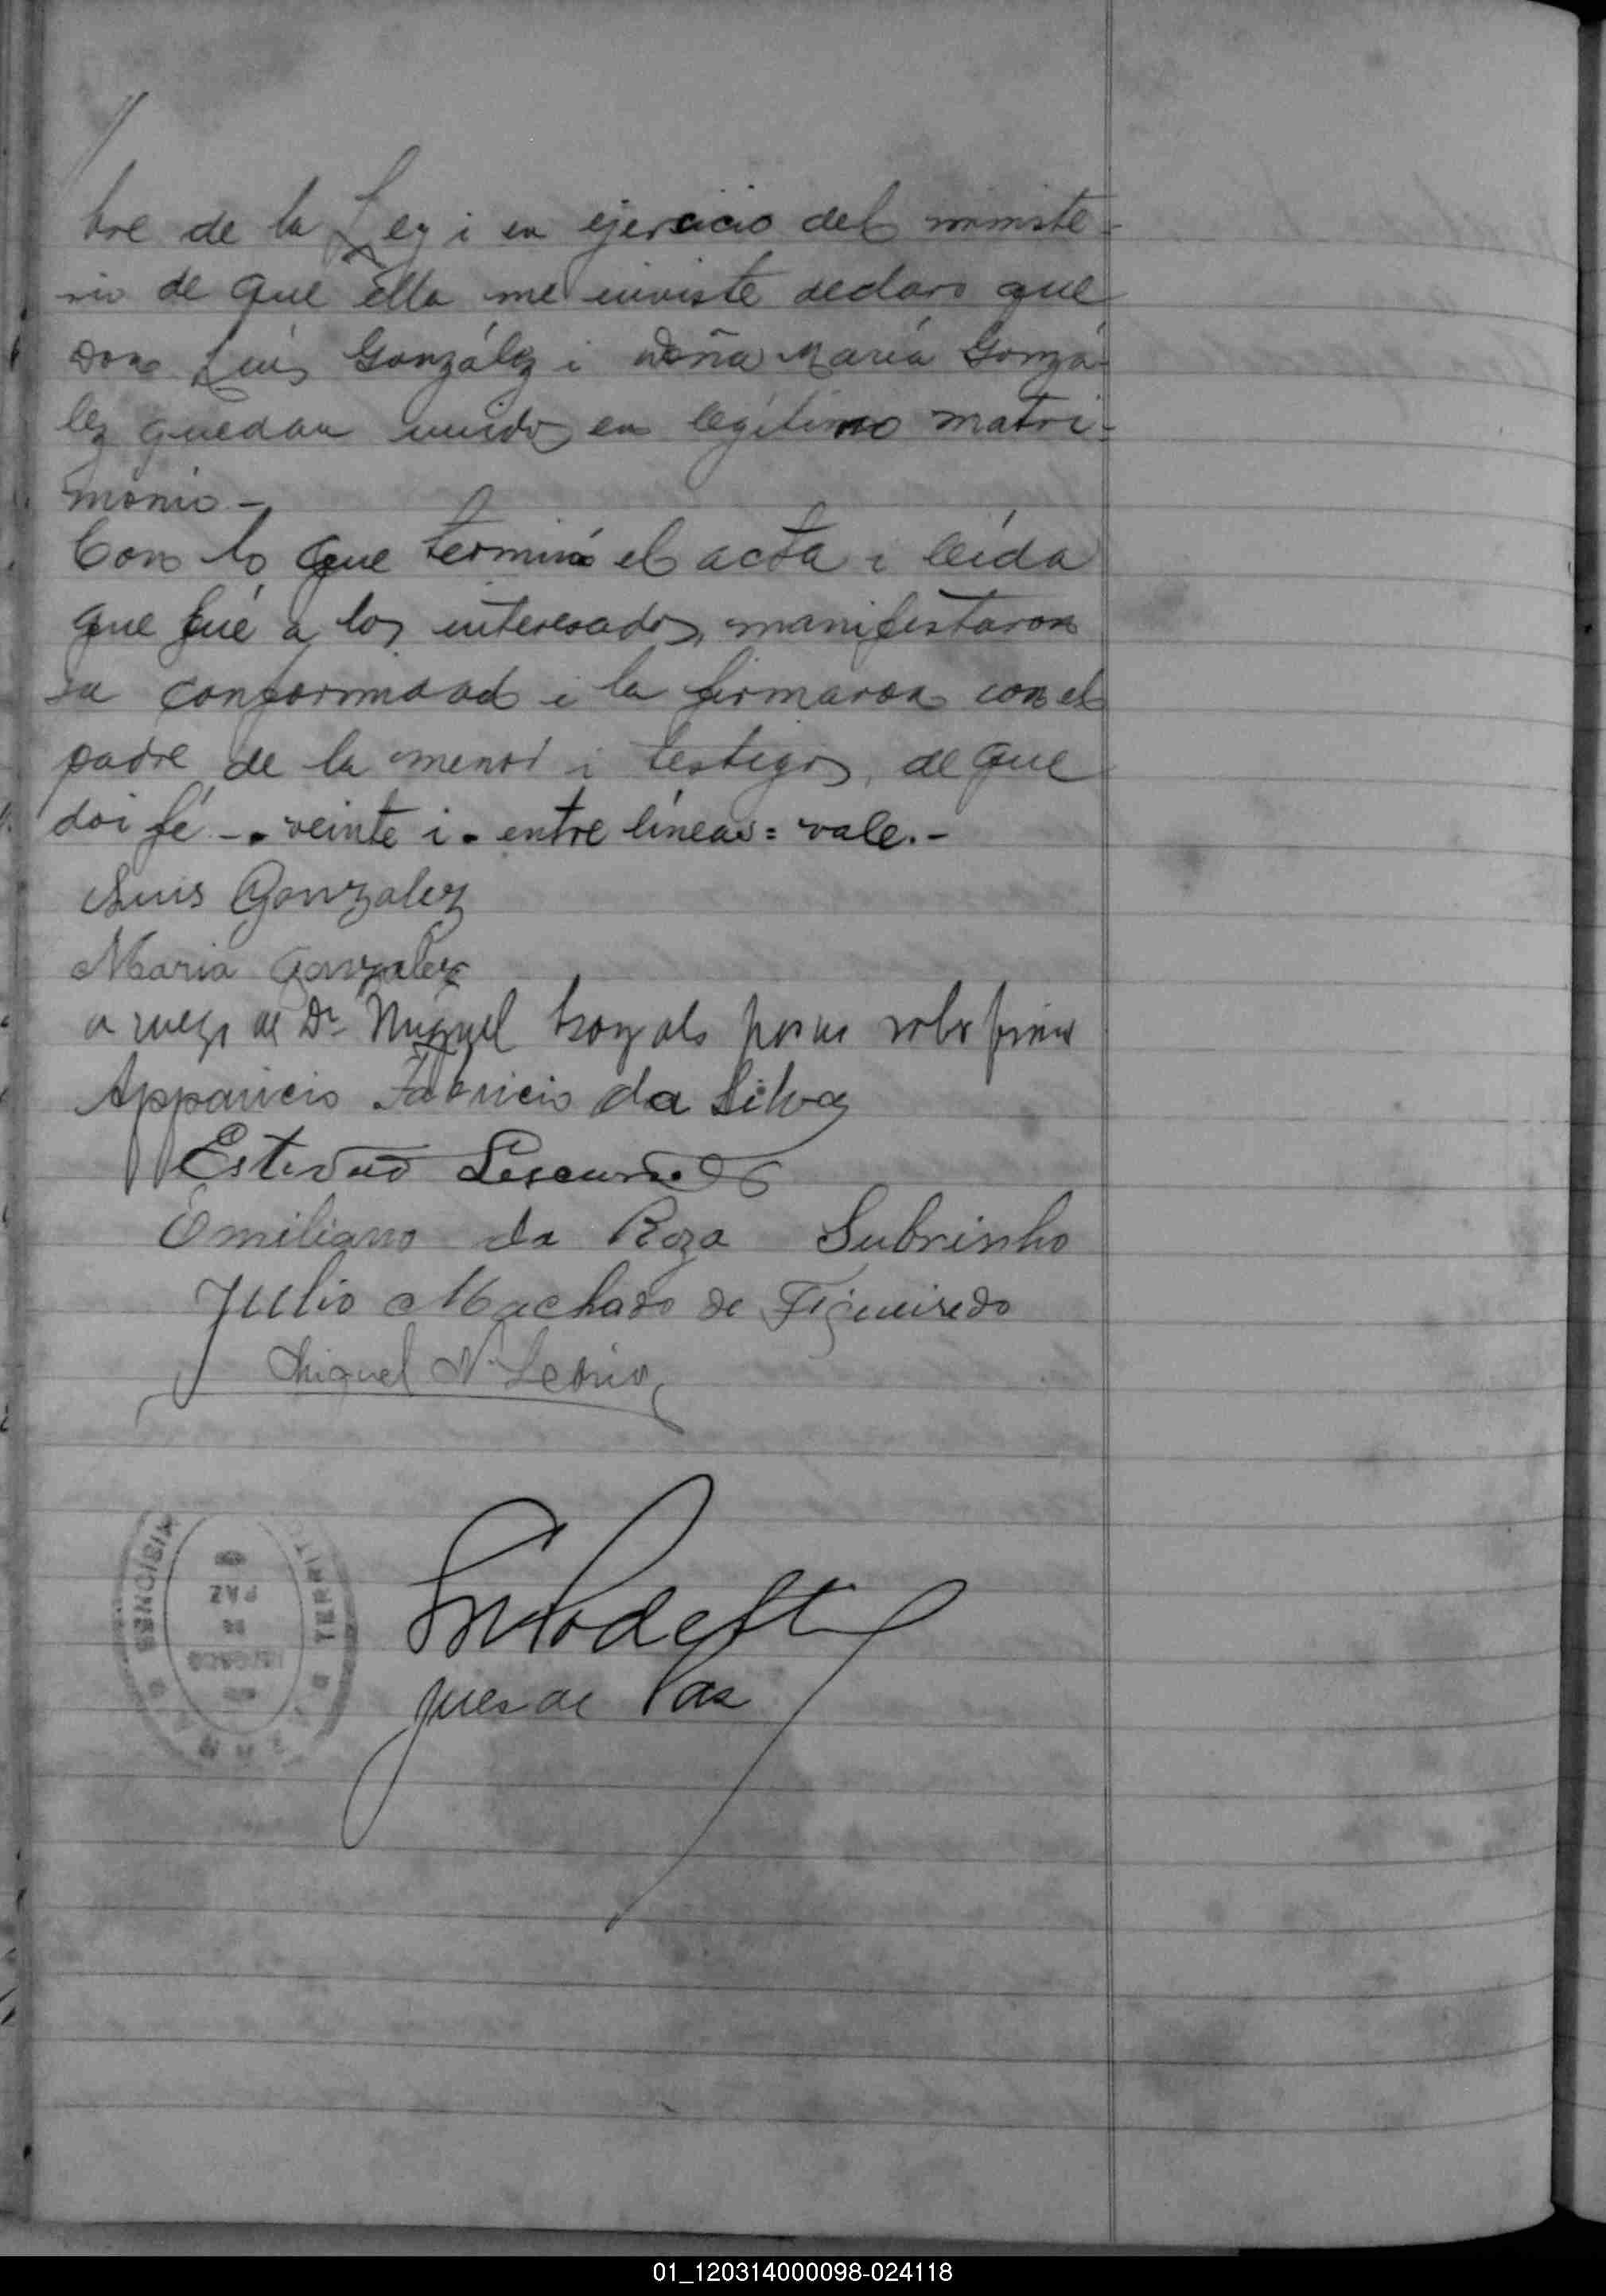 bre de la Ley i en ejercicio del ministe-
rio de que ella me inviste declaro que
Don Luís González i doña María Gonzá-
lez quedan unidos en legítimo matri-
monio -
Con lo que terminó el acta i leída
que fué a los interesados, manifestaron
su conformidad i la firmaron con el
padre de la menor i testigos, de que
doi fé -. veinte i. entre líneas = vale.-
Luis Gonzalez
Maria Gonzalez
a ruego de Dn Miguel
Apparicio Fabricio da Silva
Estevao
Emiliano da Roza Subrinho
Julio Machado de Figueiredo
Miguel N.
Juez de Paz
MISIONES TERRIT
JUZGADO
DE
PAZ
01_120314000098-024118